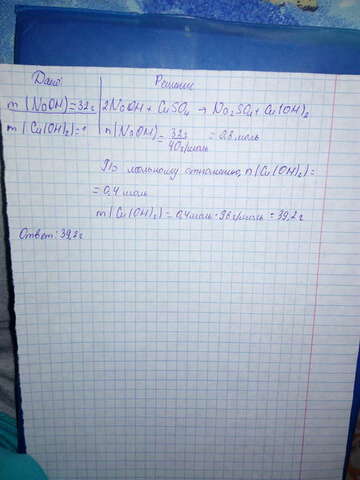 Дано: Решение
m(NaOH)=32г 2NaOH + CuSO4 → Na2SO4 + Cu(OH)2
m(Cu(OH)2)=? n(NaOH)= 32г / 40г/моль = 0,8 моль
По мольному отношению, n(Cu(OH)2)=
= 0,4 моль
m(Cu(OH)2) = 0,4моль · 98г/моль = 39,2г
Ответ: 39,2г